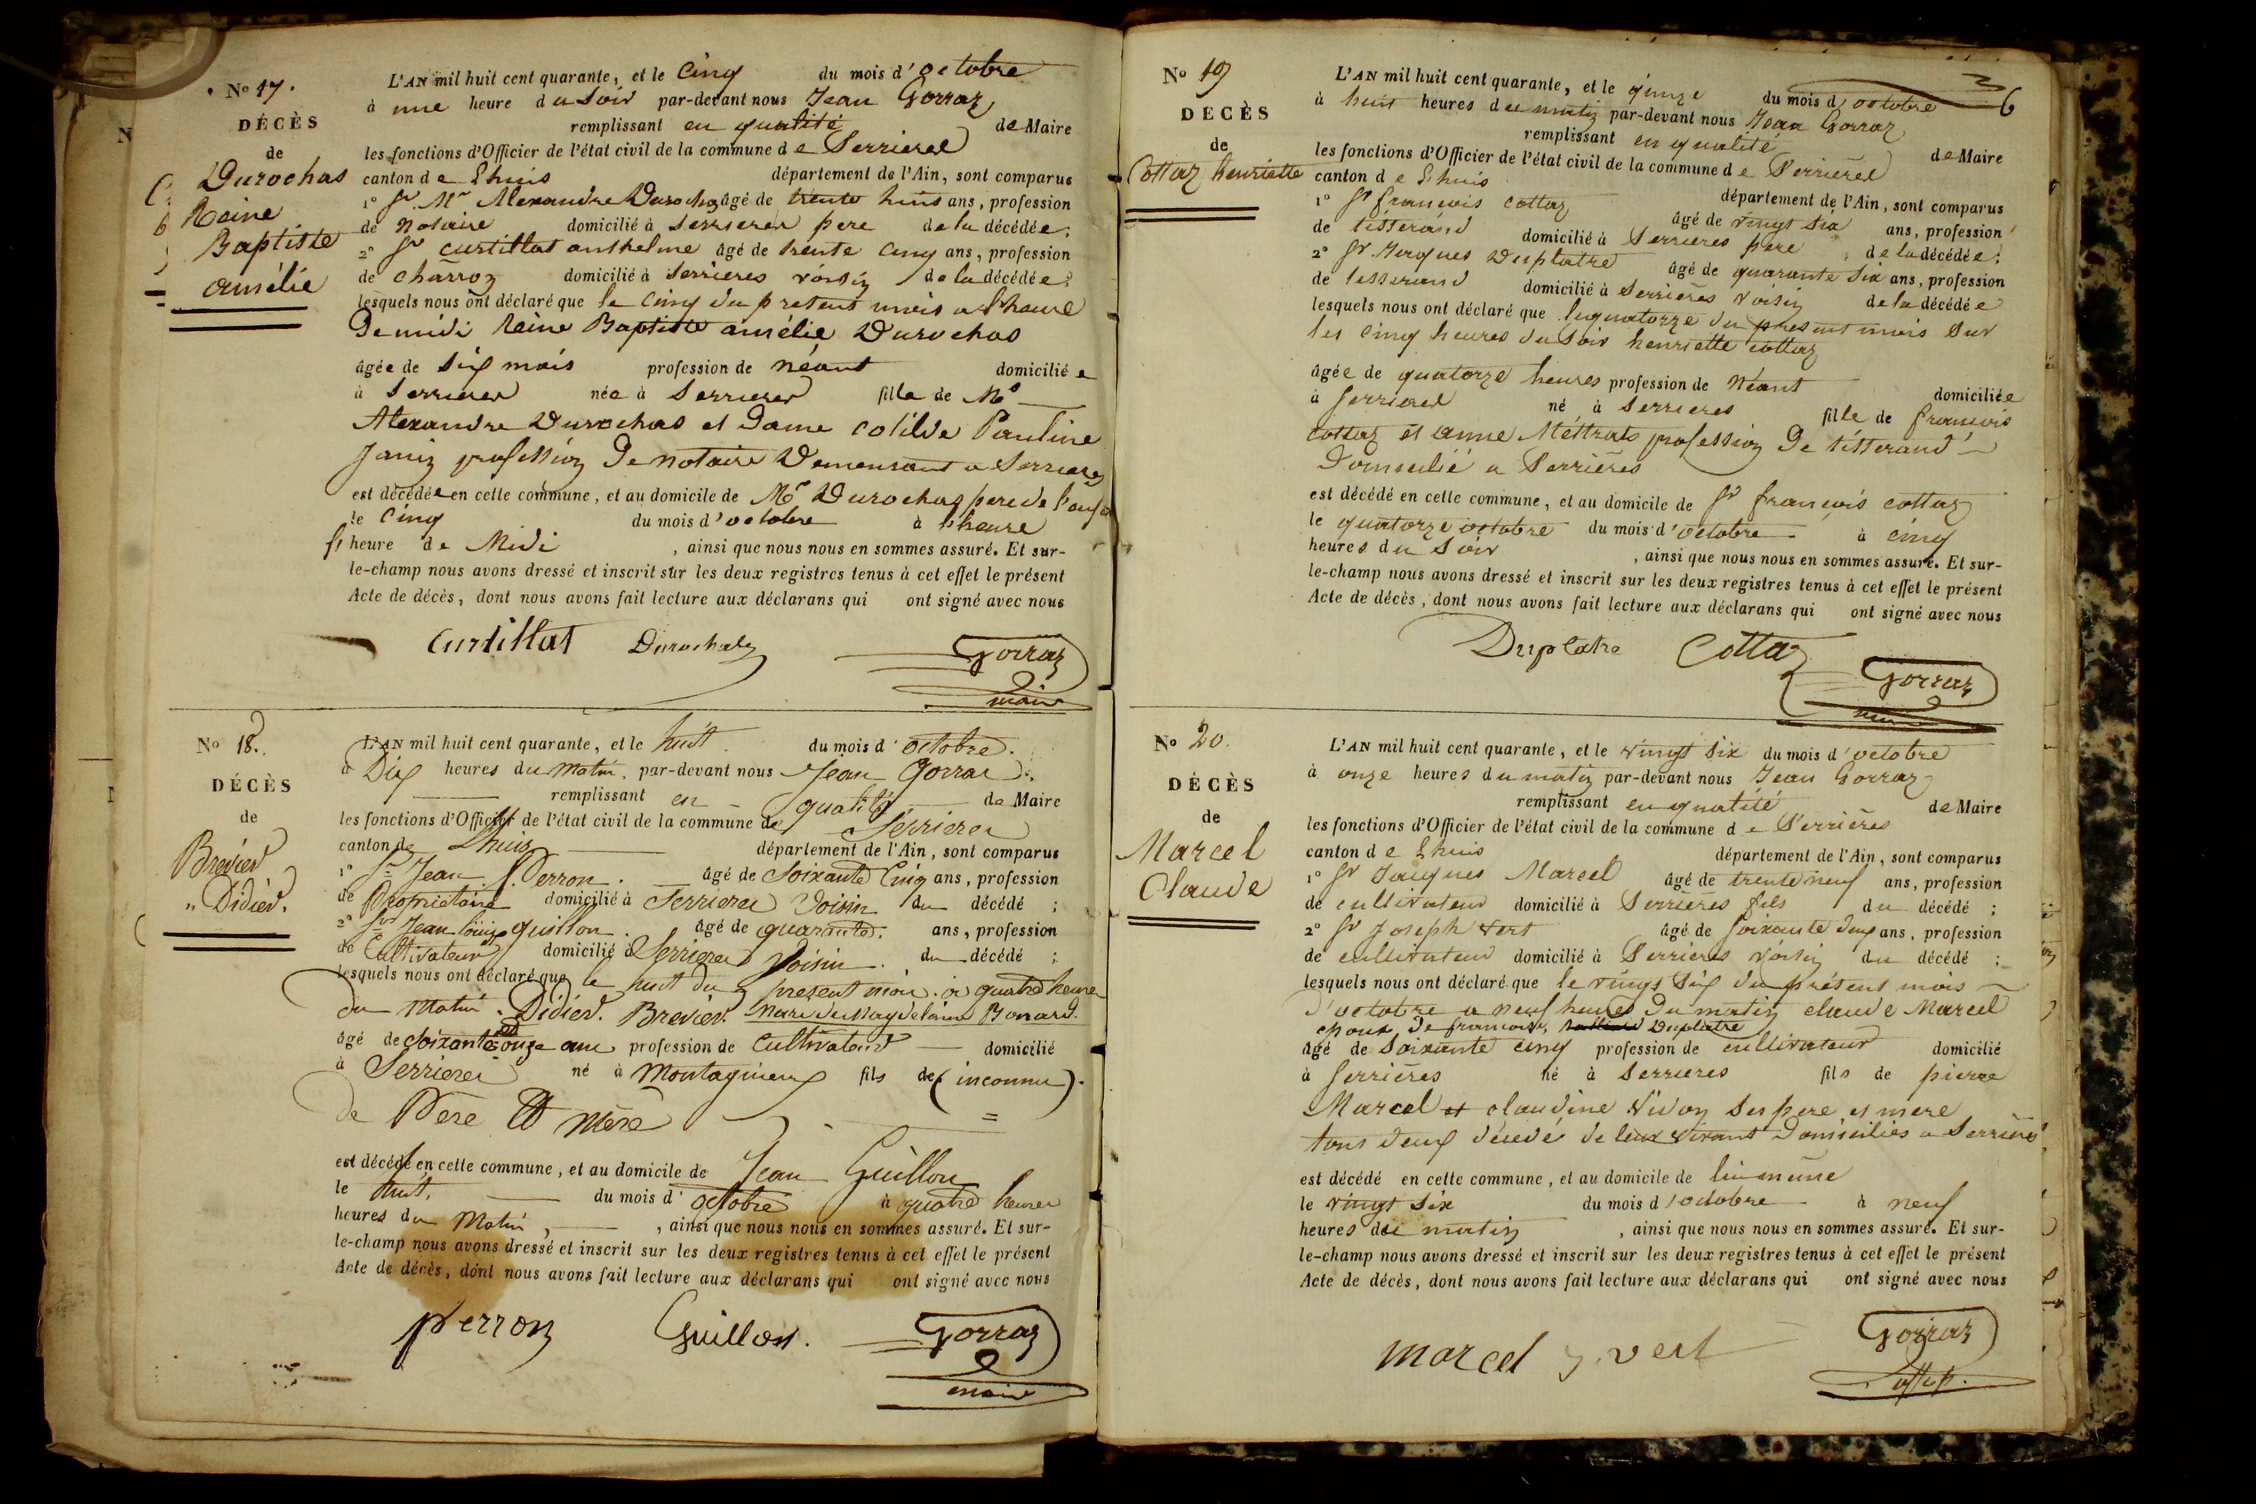 No 17.
DÉCÈS
de
Durochas
Reine
Baptiste
amélie
L'AN mil huit cent quarante, et le Cinq du mois d'octobre
à une heure du soir par-devant nous Jean Gorraz
remplissant en qualité de Maire
les fonctions d'Officier de l'état civil de la commune de Serrieres
canton de Lhuis département de l'Ain, sont comparus
1° Sr Mr Alexandre Durochas âgé de trente huis ans, profession
de Notaire domicilié à Serrieres pere de la décédée;
2° Sr Curtillat anthelme âgé de trente cinq ans, profession
de charron domicilié à Serrieres voisin de la décédée;
lesquels nous ont déclaré que le cinq du present mois a l'heure
De midi Reine Baptiste amélie Durochas
âgée de six mois profession de néant domiciliée
à Serrieres née à Serrieres fille de Mr
Alexandre Durochas et Dame Cotilde Pauline
Janin profession De notaire Demeurant a Serrieres
est décédée en cette commune, et au domicile de Mr Durochas pere de l'enfant
le cinq du mois d'octobre à l'heure
heure de Midi, ainsi que nous nous en sommes assuré. Et sur-
le-champ nous avons dressé et inscrit sur les deux registres tenus à cet effet le présent
Acte de décès, dont nous avons fait lecture aux déclarans qui ont signé avec nous
Curtillat Durochas Gorraz
maire
No 18.
DÉCÈS
de
Brevier
" Didier.
L'AN mil huit cent quarante, et le huit du mois d'octobre.
à Dix heures du matin, par-devant nous Jean Gorraz.
remplissant en qualité de Maire
les fonctions d'Officier de l'état civil de la commune de Serrieres
canton de Lhuis département de l'Ain, sont comparus
1° Sr Jean Perron. âgé de Soixante Cinq ans, profession
de Propriétaire domicilié à Serrieres Voisin du décédé;
2° Sr Jean Louis guillon. âgé de quarante. ans, profession
de Cultivateur domicilié à Serrieres Voisin. du décédé;
lesquels nous ont déclaré que le huit du present mois. a quatre heures
du Matin. Didier. Brevier. Mari de Magdelaine Bonard.
âgé de Soixante onze ans profession de Cultivateur domicilié
à Serrieres né à Montagnieux fils de (inconnu).
De Père Et Mère
est décédé en cette commune, et au domicile de Jean Guillon
le huit. du mois d'octobre à quatre heures
heures du Matin, ainsi que nous nous en sommes assuré. Et sur-
le-champ nous avons dressé et inscrit sur les deux registres tenus à cet effet le présent
Acte de décès, dont nous avons fait lecture aux déclarans qui ont signé avec nous
perron Guillon. Gorraz
maire
6
No 19
DÉCÈS
de
Cottaz henriette
L'AN mil huit cent quarante, et le quinze du mois d'octobre
à huit heures du matin par-devant nous Jean Gorraz
remplissant en qualité de Maire
les fonctions d'Officier de l'état civil de la commune de Serrieres
canton de Lhuis département de l'Ain, sont comparus
1° Sr françois cottaz âgé de vingt six ans, profession
de tisserand domicilié à Serrieres pere de la décédée;
2° Sr Jacques Duplatre âgé de quarante six ans, profession
de tisserand domicilié à Serrières voisin de la décédée
lesquels nous ont déclaré que le quatorze du present mois sur
les cinq heures du soir henriette cottaz
âgée de quatorze heures profession de Néant domiciliée
à Serrieres né à Serrieres fille de francois
cottaz et anne Mettrats profession De tisserand
Domicilié a Serrières
est décédé en cette commune, et au domicile de Sr françois cottaz
le quatorze octobre du mois d'octobre à cinq
heures du soir, ainsi que nous nous en sommes assuré. Et sur-
le-champ nous avons dressé et inscrit sur les deux registres tenus à cet effet le présent
Acte de décès, dont nous avons fait lecture aux déclarans qui ont signé avec nous
Duplatre Cottaz Gorraz
No 20.
DÉCÈS
de
Marcel
Claude
L'AN mil huit cent quarante, et le vingt six du mois d'octobre
à onze heures du matin par-devant nous Jean Gorraz
remplissant en qualité de Maire
les fonctions d'Officier de l'état civil de la commune de Serrières
canton de Lhuis département de l'Ain, sont comparus
1° Sr Jacques Marcel âgé de trente neuf ans, profession
de cultivateur domicilié à Serrières fils du décédé;
2° Sr Joseph Vert âgé de soixante deux ans, profession
de cultivateur domicilié à Serrières voisin du décédé;
lesquels nous ont déclaré que le vingt six du présent mois
d'octobre a neuf heures du matin claude Marcel
epoux de francoise Duplatre
âgé de soixante cinq profession de cultivateur domicilié
à Serrières né à Serrieres fils de pierre
Marcel et claudine Vivon ses pere et mere
tous deux décédé de leux vivant Domiciliés a Serrières
est décédé en cette commune, et au domicile de lui même
le vingt six du mois d'octobre à neuf
heures du matin, ainsi que nous nous en sommes assuré. Et sur-
le-champ nous avons dressé et inscrit sur les deux registres tenus à cet effet le présent
Acte de décès, dont nous avons fait lecture aux déclarans qui ont signé avec nous
marcel J. vert Gorraz